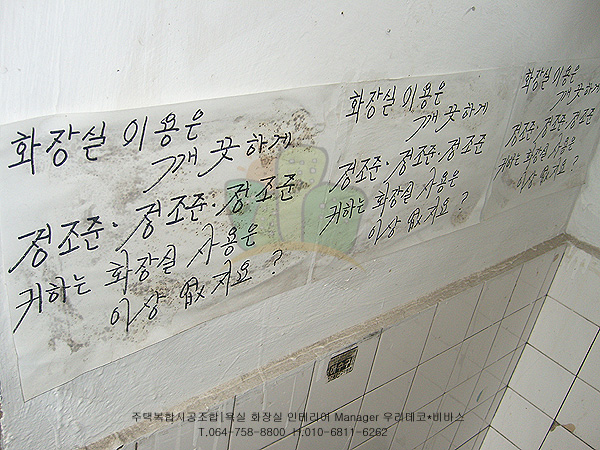 화장실 이용은
깨끗하게
정조준·정조준·정조준
귀하는 화장실 사용은
이상 없지요?
화장실 이용은
깨끗하게
정조준·정조준·정조준
귀하는 화장실 사용은
이상 없지요?
화장실 이용은
깨끗하게
정조준·정조준·정조준
귀하는 화장실 사용은
이상 없지요?
주택복합시공조합|욕실 화장실 인테리어 Manager 우리데코*비바스
T.064-758-8800 H.010-6811-6262